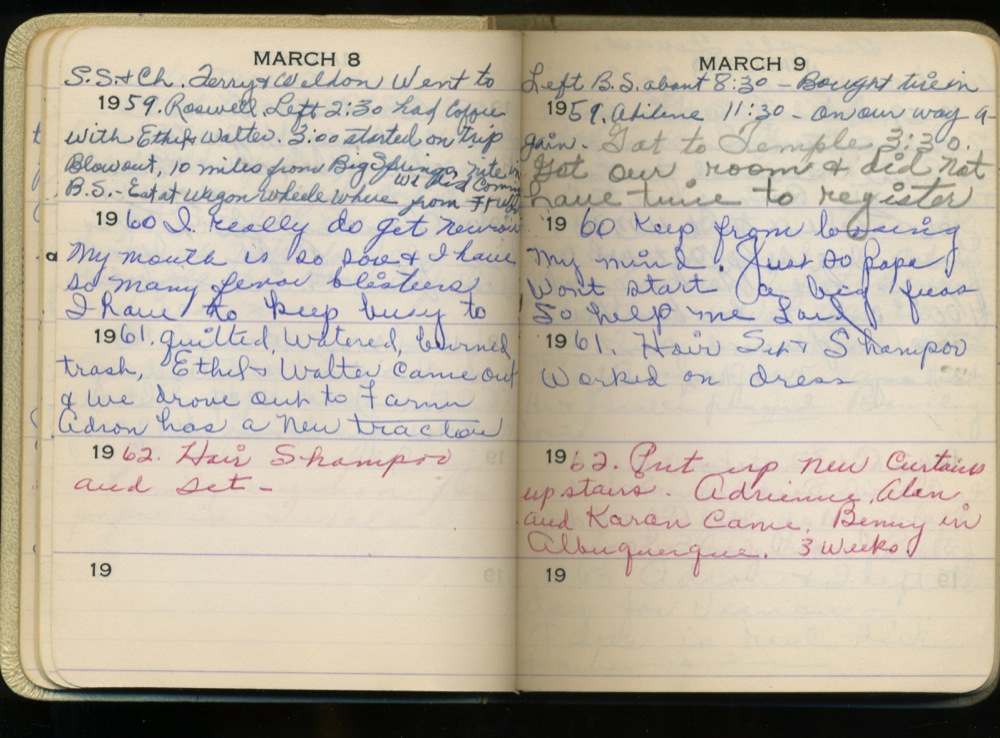 MARCH 8
S.S. & Ch. Terry & Weldon Went to
1959. Roswell Left 2:30 had Coffee
with Ethel & Walter. 3:00 started on trip
Blowout, 10 miles from Big Springs, nite in
B.S. - Eat at Wagon Wheele Where
we had Coming
from Ft
1960 I really do get nervous
a My mouth is so sore & I have
so many fever blisters
I have to keep busy to
1961. quilted, Watered, burned
trash, Ethel & Walter Came out
& we drove out to Farm
Adron has a New tractor
1962. Hair Shampoo
and set -
19
MARCH 9
Left B.S. about 8:30 - Bought tire in
1959. Abilene 11:30 - on our way a-
gain. Got to Temple 3:30.
Got our room & did not
have time to register
1960 Keep from loosing
My mind. Just so Papa
Wont start a big fuss
So help me Lord
1961. Hair Set & Shampoo
Worked on dress
1962. Put up new Curtains
up stairs. Adrienne, Alan
and Karan Came. Benny in
Albuquerque. 3 Weeks
19